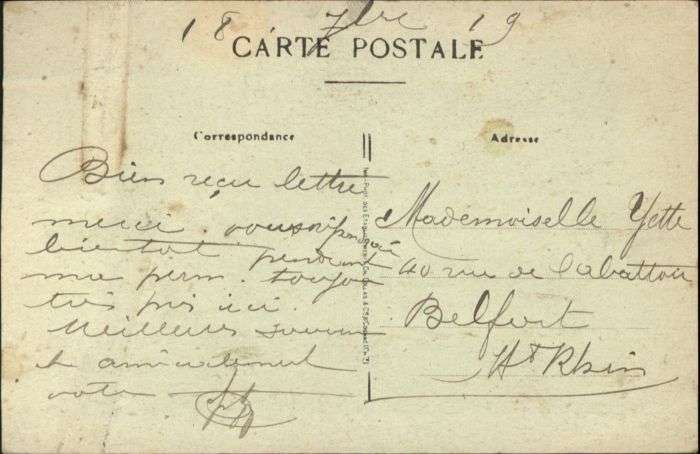 18 7bre 19
CARTE POSTALE
Correspondance
Adresse
Bien reçu lettre
merci. vous répondrai
bientot pendant
ma perm. toujours
très pris ici.
Meilleurs souvenirs
et amicalement
votre
Mademoiselle Yette
40 rue de l'abattoir
Belfort
Ht Rhin